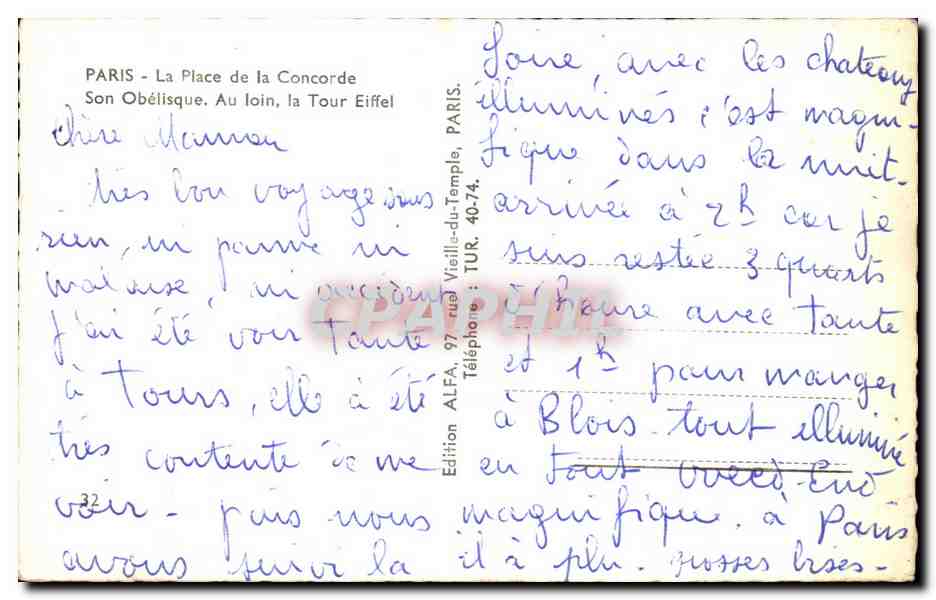 PARIS - La Place de la Concorde
Son Obélisque. Au loin, la Tour Eiffel
Chère Maman
très bon voyage sans
rien, ni panne ni
malaise, ni accident
j'ai été voir Tante
à Tours, elle à été
très contente de me
voir - puis nous
avons suivi la
32
Edition ALFA, 97 rue Vieille-du-Temple, PARIS.
Téléphone : TUR. 40-74.
Loire, avec les chateaux
illuminés c'est magni-
fique dans la nuit.
arrivée à 2h car je
suis restée 3 quarts
d'heure avec Tante
et 1h pour manger
à Blois tout illuminé
en tout
magnifique. à Paris
il à plu. grosses bises-
CPAPHIL